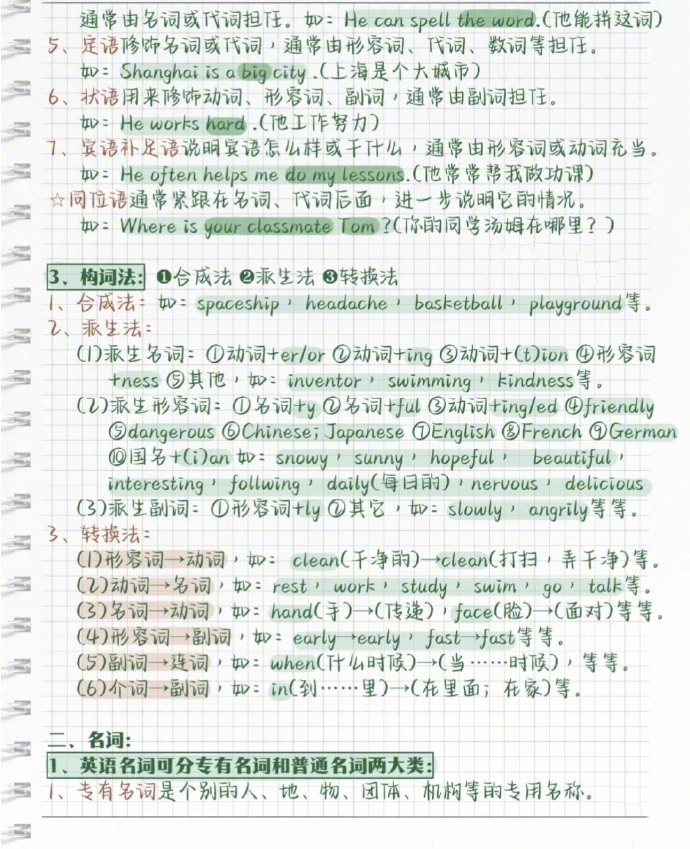 通常由名词或代词担任。如：He can spell the word.(他能拼这词)
5、定语修饰名词或代词，通常由形容词、代词、数词等担任。
如：Shanghai is a big city .(上海是个大城市)
6、状语用来修饰动词、形容词、副词，通常由副词担任。
如：He works hard .(他工作努力)
7、宾语补足语说明宾语怎么样或干什么，通常由形容词或动词充当。
如：He often helps me do my lessons.(他常常帮我做功课)
☆同位语通常紧跟在名词、代词后面，进一步说明它的情况。
如：Where is your classmate Tom ?(你的同学汤姆在哪里？)
3、构词法：❶合成法 ❷派生法 ❸转换法
1、合成法：如：spaceship，headache，basketball，playground等。
2、派生法：
(1)派生名词：①动词+er/or ②动词+ing ③动词+(t)ion ④形容词
+ness ⑤其他，如：inventor，swimming，kindness等。
(2)派生形容词：①名词+y ②名词+ful ③动词+ing/ed ④friendly
⑤dangerous ⑥Chinese；Japanese ⑦English ⑧French ⑨German
⑩国名+(i)an 如：snowy，sunny，hopeful，beautiful，
interesting，follwing，daily(每日的)，nervous，delicious
(3)派生副词：①形容词+ly ②其它，如：slowly，angrily等等。
3、转换法：
(1)形容词→动词，如：clean(干净的)→clean(打扫，弄干净)等。
(2)动词→名词，如：rest，work，study，swim，go，talk等。
(3)名词→动词，如：hand(手)→(传递)，face(脸)→(面对)等等。
(4)形容词→副词，如：early→early，fast→fast等等。
(5)副词→连词，如：when(什么时候)→(当……时候)，等等。
(6)介词→副词，如：in(到……里)→(在里面；在家)等。
二、名词：
1、英语名词可分专有名词和普通名词两大类：
1、专有名词是个别的人、地、物、团体、机构等的专用名称。